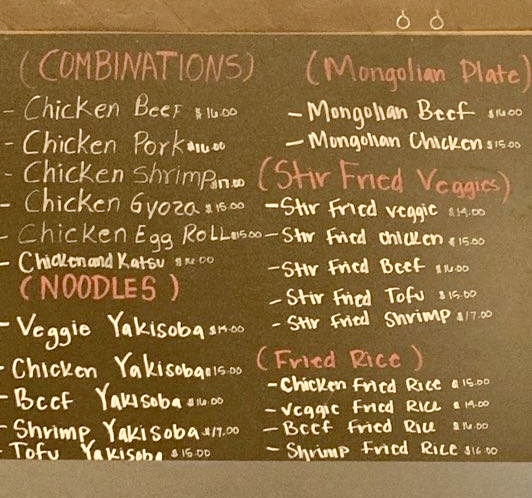 (COMBINATIONS)
- Chicken Beef $16.00
- Chicken Pork $16.00
- Chicken Shrimp $17.00
- Chicken Gyoza $15.00
- Chicken Egg Roll $15.00
- Chicken and Katsu
(NOODLES)
- Veggie Yakisoba $14.00
- Chicken Yakisoba $15.00
- Beef Yakisoba $16.00
- Shrimp Yakisoba $17.00
- Tofu Yakisoba $15.00
(Mongolian Plate)
- Mongolian Beef $16.00
- Mongolian Chicken $15.00
(Stir Fried Veggies)
- Stir Fried veggie $14.00
- Stir Fried chicken $15.00
- Stir Fried Beef $16.00
- Stir Fried Tofu $15.00
- Stir Fried Shrimp $17.00
(Fried Rice)
- Chicken Fried Rice $15.00
- Veggie Fried Rice $14.00
- Beef Fried Rice $16.00
- Shrimp Fried Rice $16.00